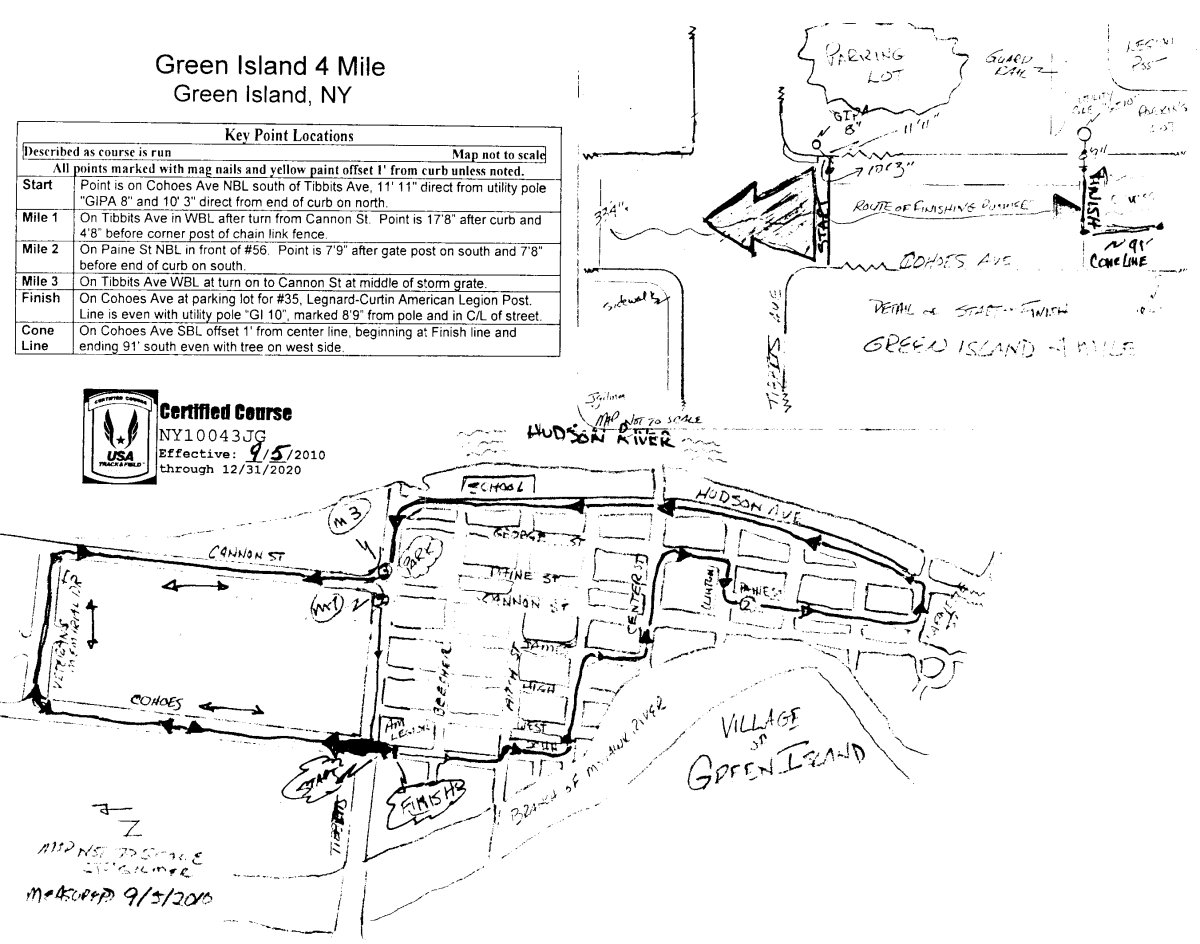 Green Island 4 Mile
Green Island, NY
Key Point Locations
Described as course is run Map not to scale
All points marked with mag nails and yellow paint offset 1' from curb unless noted.
Start Point is on Cohoes Ave NBL south of Tibbits Ave, 11' 11" direct from utility pole
"GIPA 8" and 10' 3" direct from end of curb on north.
Mile 1 On Tibbits Ave in WBL after turn from Cannon St. Point is 17'8" after curb and
4'8" before corner post of chain link fence.
Mile 2 On Paine St NBL in front of #56. Point is 7'9" after gate post on south and 7'8"
before end of curb on south.
Mile 3 On Tibbits Ave WBL at turn on to Cannon St at middle of storm grate.
Finish On Cohoes Ave at parking lot for #35, Legnard-Curtin American Legion Post.
Line is even with utility pole "GI 10", marked 8'9" from pole and in C/L of street.
Cone On Cohoes Ave SBL offset 1' from center line, beginning at Finish line and
Line ending 91' south even with tree on west side.
CERTIFIED COURSE
USA
TRACK & FIELD
Certified Course
NY10043JG
Effective: 9/5/2010
through 12/31/2020
PARKING
LOT
GUARD
RAIL
UTILITY
GIPA
8"
11'11"
10'3"
START
FINISH
COHOES AVE
~91'
CONE LINE
Sidewalk
TIBBITS AVE
DETAIL of START - FINISH
GREEN ISLAND 4 MILE
MAP NOT TO SCALE
HUDSON RIVER
SCHOOL
HUDSON AVE
M3
GEORGE ST
PARK
CANNON ST
PAINE ST
CENTER ST
CLINTON
PAINE ST
M1
CANNON ST
2
VETERANS
MEMORIAL DR
JAMES
BEECHER
HIGH
COHOES
AM
LEGION
WEST
VILLAGE
OF
GREEN ISLAND
START
FINISH
BRANCH OF MOHAWK RIVER
TIBBITS
MAP NOT TO SCALE
MEASURED 9/5/2010